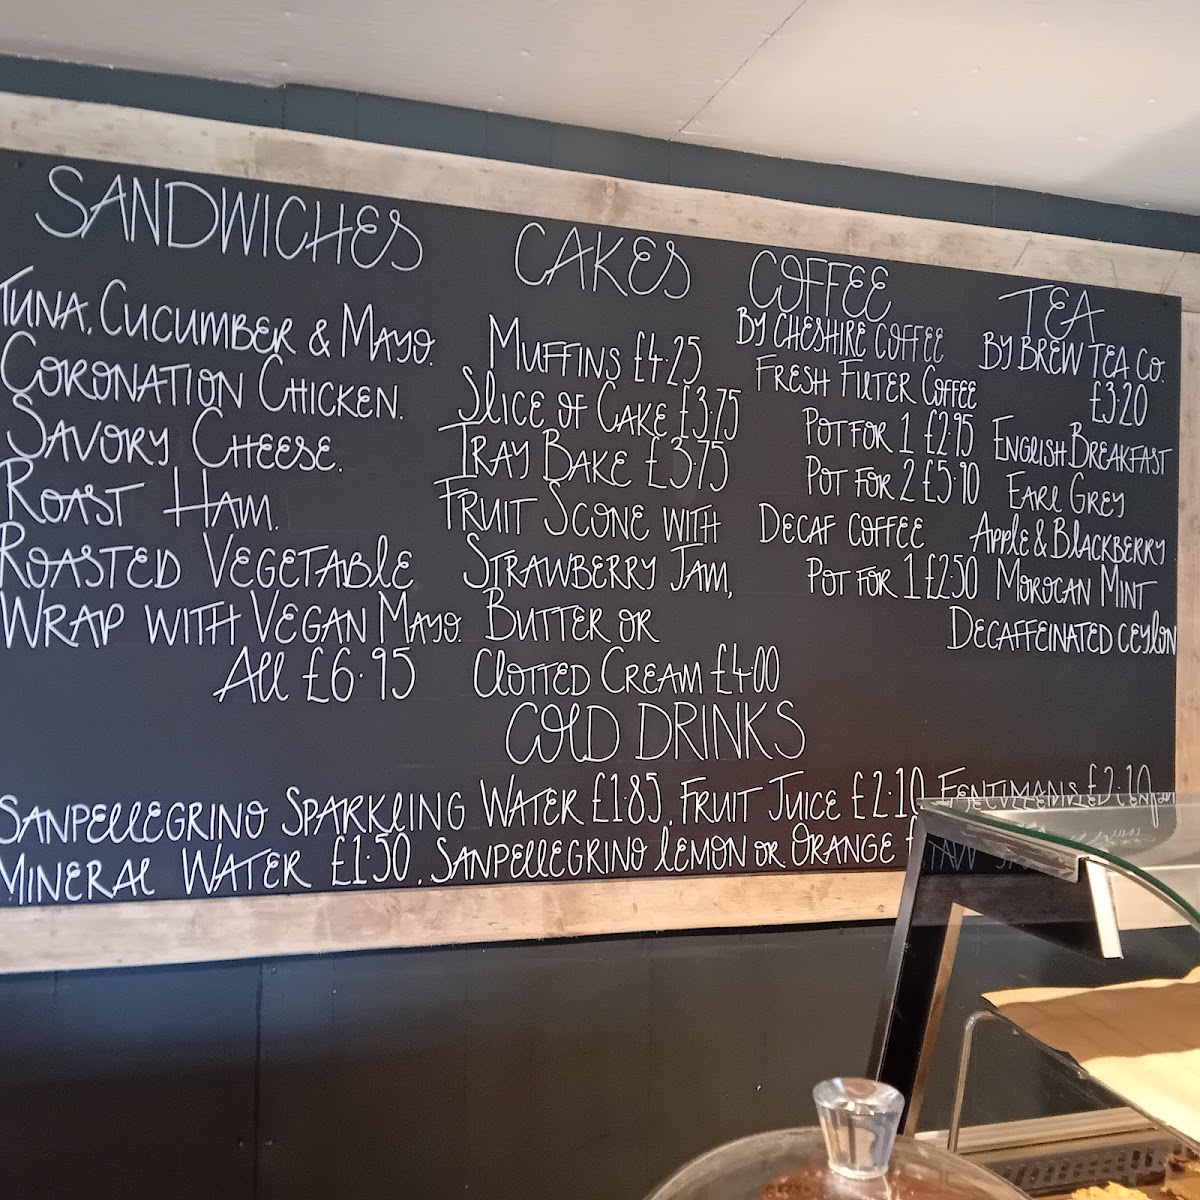 SANDWICHES
TUNA, CUCUMBER & MAYO.
CORONATION CHICKEN.
SAVORY CHEESE.
ROAST HAM.
ROASTED VEGETABLE
WRAP WITH VEGAN MAYO.
All £6.95
CAKES
MUFFINS £4.25
SLICE OF CAKE £3.75
TRAY BAKE £3.75
FRUIT SCONE WITH
STRAWBERRY JAM,
BUTTER OR
CLOTTED CREAM £4.00
COFFEE
BY CHESHIRE COFFEE
FRESH FILTER COFFEE
POT FOR 1 £2.95
POT FOR 2 £5.90
DECAF COFFEE
POT FOR 1 £2.50
TEA
BY BREW TEA CO.
£3.20
ENGLISH BREAKFAST
EARL GREY
APPLE & BLACKBERRY
MOROCAN MINT
DECAFFEINATED CEYLON
COLD DRINKS
SANPELLEGRINO SPARKLING WATER £1.85, FRUIT JUICE £2.10 FENTIMANS £2.10
MINERAL WATER £1.50, SANPELLEGRINO LEMON OR ORANGE